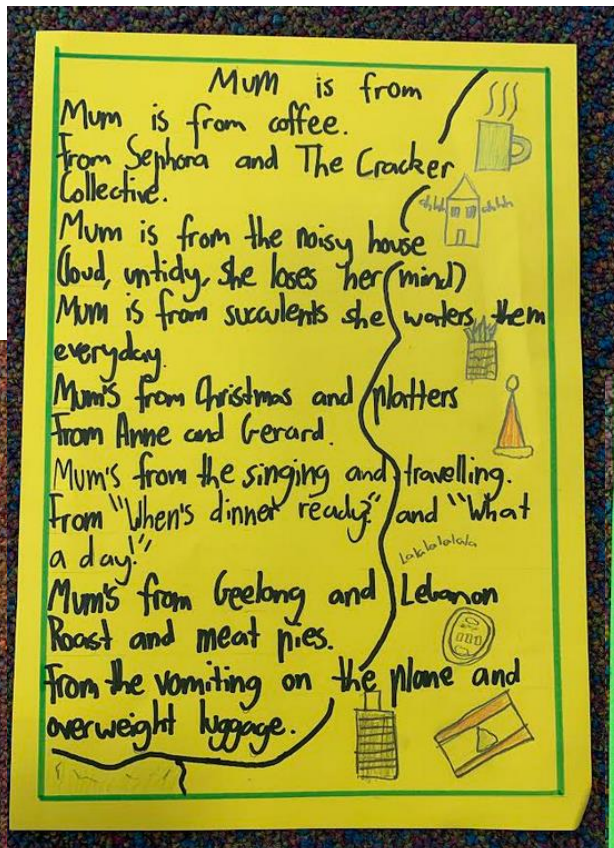 Mum is from
Mum is from coffee.
From Sephora and The Cracker
Collective.
Mum is from the noisy house
(loud, untidy, she loses her mind)
Mum is from succulents she waters them
everyday.
Mum's from Christmas and platters
From Anne and Gerard.
Mum's from the singing and travelling.
From "When's dinner ready?" and "What
a day!"
Lalalalalala
Mum's from Geelong and Lebanon
Roast and meat pies.
From the vomiting on the plane and
overweight luggage.